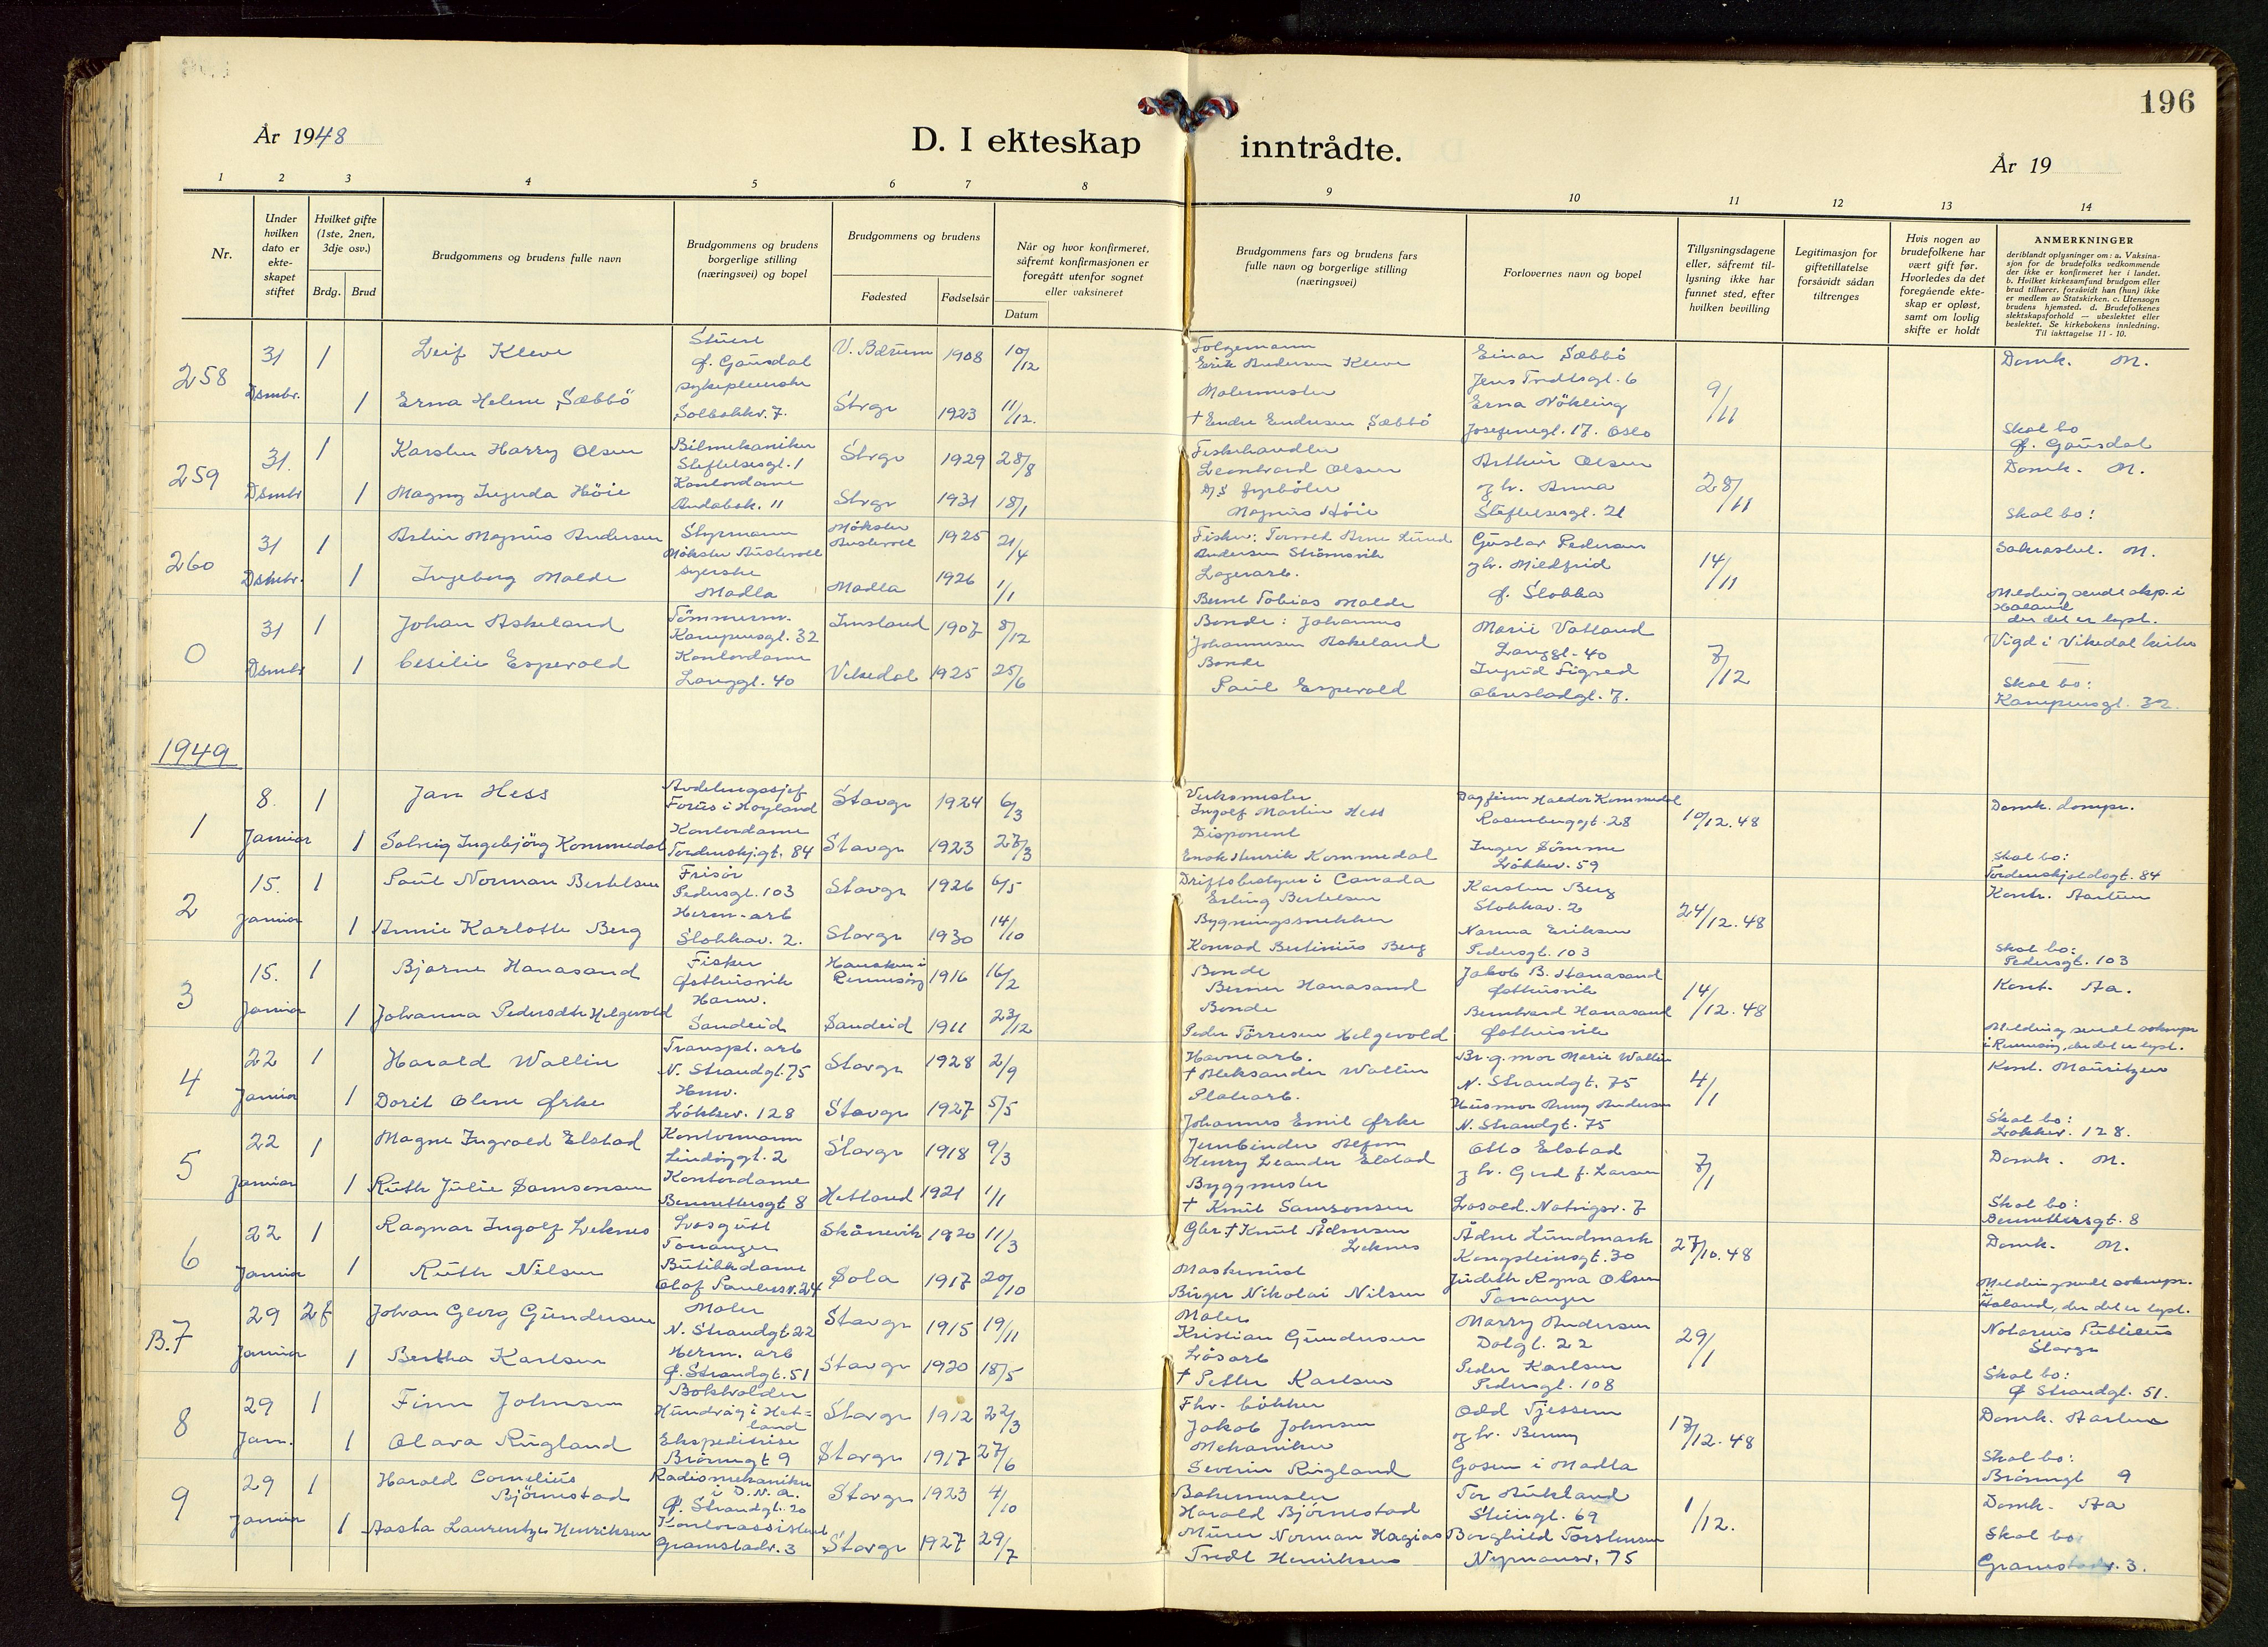 196
År 1948
D. I ekteskap inntrådte.
År 19
1 2 3 4 5 6 7 8 9 10 11 12 13 14
Nr.
Under hvilken dato er ekteskapet stiftet
Hvilket gifte (1ste, 2nen, 3dje osv.)
Brdg. Brud
Brudgommens og brudens fulle navn
Brudgommens og brudens borgerlige stilling (næringsvei) og bopel
Brudgommens og brudens
Fødested
Fødselsår
Når og hvor konfirmeret, såfremt konfirmasjonen er foregått utenfor sognet eller vaksineret
Datum
Brudgommens fars og brudens fars fulle navn og borgerlige stilling (næringsvei)
Forlovernes navn og bopel
Tillysningsdagene eller, såfremt tillysning ikke har funnet sted, efter hvilken bevilling
Legitimasjon for giftetillatelse forsåvidt sådan tiltrenges
Hvis nogen av brudefolkene har vært gift før. Hvorledes da det foregående ekteskap er opløst, samt om lovlig skifte er holdt
ANMERKNINGER
deriblandt oplysninger om: a. Vaksinasjon for de brudefolks vedkommende der ikke er konfirmeret her i landet. b. Hvilket kirkesamfund brudgom eller brud tilhører, forsåvidt han (hun) ikke er medlem av Statskirken. c. Utensogn brudens hjemsted. d. Brudefolkenes slektskapsforhold — ubeslektet eller beslektet. Se kirkebokens innledning. Til iakttagelse 11 - 10.
258 31 Dsmbr. 1 Leif Kleve Stuert Ø. Gausdal V. Bærum 1908 10/12 Erik Andersen Kleve Einar Sæbbö Jens Tvedtsgt. 6 9/11 Domk. M.
1 Erna Helene Sæbbö Sykepleierske Solbakkv. 7. Stvgr 1923 11/12. Malermester † Endre Endresen Sæbbö Erna Nökling Josefinegt. 17. Oslo Skal bo Ø. Gausdal
259 31. Dsmbr 1 Karsten Harry Olsen Bilmekaniker Steffelsesgt. 1 Stvgr 1929 28/8 Fiskehandler Leonhard Olsen Arthur Olsen 28/11 Domk. M.
1 Magny Ingerda Höie Kontordame Stvgr 1931 18/1 D/S fyrböter Magnus Höie og hr. Anna Skal bo:
260 31 Dsmbr. 1 Magnus Andersen Styrmann Mökster Austevoll Mökster Austevoll 1925 21/4 Andersen Strömsvik Gustav Pedersen 14/11 Sakrastiet. M.
1 Ingeborg Malde Syerske Madla Madla 1926 1/1 Lagerarb. Bernt Tobias Malde og hr. Mildfrid Ø. Stokka Melding sendt skp. i Håland der det er lyst.
0 31 Dsmbr 1 Johan Askeland Tömmerm. Kampensgt. 32 Imsland 1907 8/12 Bonde: Johannes Johannesen Askeland Marie Vatland Langgt. 40 7/12 Vigd i Vikedal kirke
1 Cesilie Espevold Kontordame Langgt. 40 Vikedal 1925 25/6 Bonde Paul Espevold Ingrid Tigved Skal bo: Kampensgt. 32.
1949
1 8. Januar 1 Jan Hess Avdelingssjef Forus i Høyland Stavgr 1924 6/3 Verksmester Ingolf Martin Hess Dagfinn Haldor Kommedal Rosenberggt. 28 10/12.48 Domk. dompr.
1 Solveig Ingebjörg Kommedal Kontordame Tordenskj.gt. 84 Stavgr 1923 27/3 Disponent Enok Henrik Kommedal Inger Sømme Løkkev. 59 Skal bo: Tordenskjoldsgt. 84
2 15. Januar 1 Paul Norman Bertelsen Frisör Pedersgt. 103 Stavgr 1926 6/5 Driftsbestyrer i Canada Erling Bertelsen Karsten Berg Stokkav. 2 24/12.48 Kontr. Aartun
1 Annie Karlotte Berg Herm. arb Stokkav. 2. Stavgr 1930 14/10 Bygningssnekker Konrad Bertinius Berg Norma Eriksen Pedersgt. 103 Skal bo: Pedersgt. 103
3 15. Januar 1 Bjarne Hanasand Fisker Østhusvik Hausken i Rennesøy 1916 16/2 Bonde Berner Hanasand Jakob B. Hanasand Østhusvik 14/12.48 Kont. Aa.
1 Johanna Pedersdtr Helgevold Husv. Sandeid Sandeid 1911 23/12 Bonde Peder Törresen Helgevold Bernhard Hanasand Østhusvik Melding sendt soknepr i Rennesøy, der det er lyst.
4 22 Januar 1 Harald Wallin Transpt. arb N. Strandgt. 75 Stavgr 1928 2/9 Havnearb. † Aleksander Wallin Br.g.mor Marie Wallin N. Strandgt. 75 4/1 Kont. Mauritzen
1 Dorit Olene Ørke Husv. Løkkev. 128 Stavgr 1927 5/5 Platearb. Johannes Emil Ørke Husmor Anny Andersen N. Strandgt. 75 Skal bo: Løkkev. 128.
5 22 Januar 1 Magne Ingvald Elstad Kontormann Lindøygt. 2 Stavgr 1918 9/3 Jernbinder Henry Leander Elstad Otto Elstad 7/1 Domk. M.
1 Ruth Julie Samsonsen Kontordame Bennettersgt 8 Hetland 1921 1/1 Byggmester † Knut Samsonsen og hr. Gerd f. Larsen Skal bo: Bennettersgt. 8
6 22 Januar 1 Ragnar Ingolf Leknes Losgutt Tananger Skånevik 1920 11/3 Gbr † Knut Ådnesen Leknes Ådne Lundmark Kongsteinsgt. 30 27/10.48 Domk. M.
1 Ruth Nilsen Butikkdame Olaf Paulusv. 24 Sola 1917 20/10 Maskinist Birger Nikolai Nilsen Judith Ragna Olsen Tananger Melding sendt soknepr. i Håland, der det er lyst.
B.7 29 Januar 2 f Johan Georg Gundersen Maler N. Strandgt. 22 Stavgr 1915 19/11 Maler Kristian Gundersen Marry Andersen Dalgt. 22 29/1 Notarius Publicus Stavgr
1 Bertha Karlsen Herm. arb Ø. Strandgt. 51 Stavgr 1920 18/5 Løsarb † Petter Karlsen Peder Karlsen Pedersgt. 108 Skal bo: Ø Strandgt. 51.
8 29 Jan. 1 Finn Johnsen Bokholder Hundvåg i Hetland Stavgr 1912 22/3 Fhv. bökker Jakob Johnsen Odd Tjessem 17/12.48 Domk. Aartun
1 Olava Rugland Ekspeditrise Brönngt 9 Stavgr 1917 27/6 Mekaniker Severin Rugland og hr. Benny Gosen i Madla Skal bo: Brönngt 9
9 29 Januar 1 Harald Cornelius Björnestad Radiomekaniker i D.N.A. Ø. Strandgt. 20 Stavgr 1923 4/10 Bakermester Harald Björnestad Tor Aukland Steingt. 69 1/12. Domk. Aa
1 Aasta Laurentze Henriksen Kontorassistent Gramstadv. 3 Stavgr 1927 29/7 Murer Norman Hagias Tvedt Henriksen Borghild Torstensen Nymansv. 75 Skal bo Gramstadv. 3.